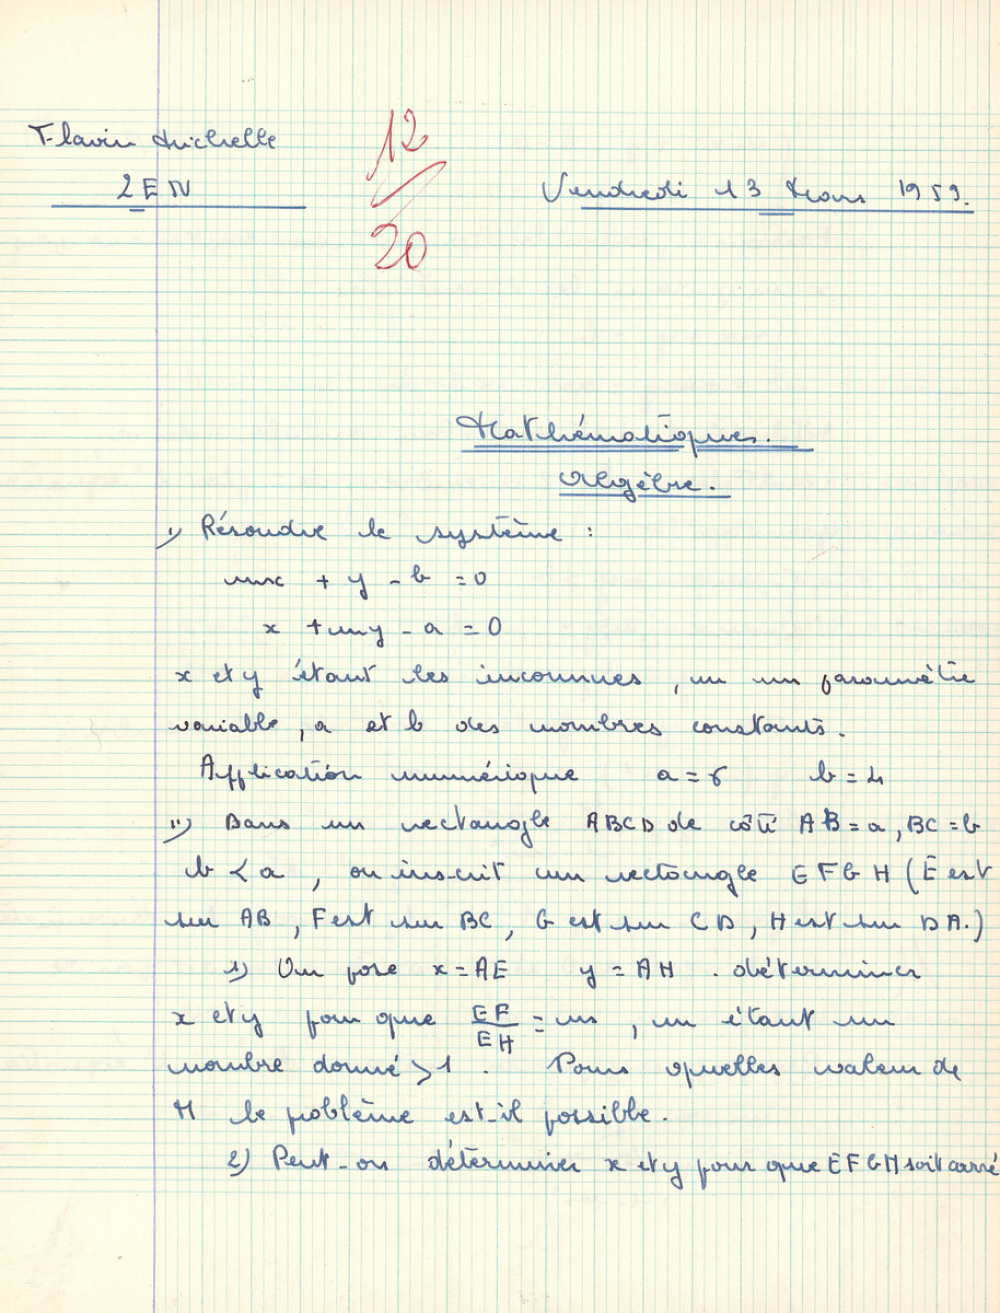 Flavin Michelle
12
20
2 E N
Vendredi 13 Mars 1959.
Mathématiques.
Algèbre.
1) Résoudre le système :
mx + y - b = 0
x + my - a = 0
x et y étant les inconnues, m un paramètre
variable, a et b des nombres constants.
Application numérique a = 8 b = 4
11) Dans un rectangle ABCD de côté AB = a, BC = b
b < a, on inscrit un rectangle EFGH (E est
sur AB, F est sur BC, G est sur CD, H est sur DA.)
1) On pose x = AE y = AH. déterminer
x et y pour que EF/EH = m, m étant un
nombre donné > 1. Pour quelles valeur de
M le problème est-il possible.
2) Peut-on déterminer x et y pour que EFGH soit carré